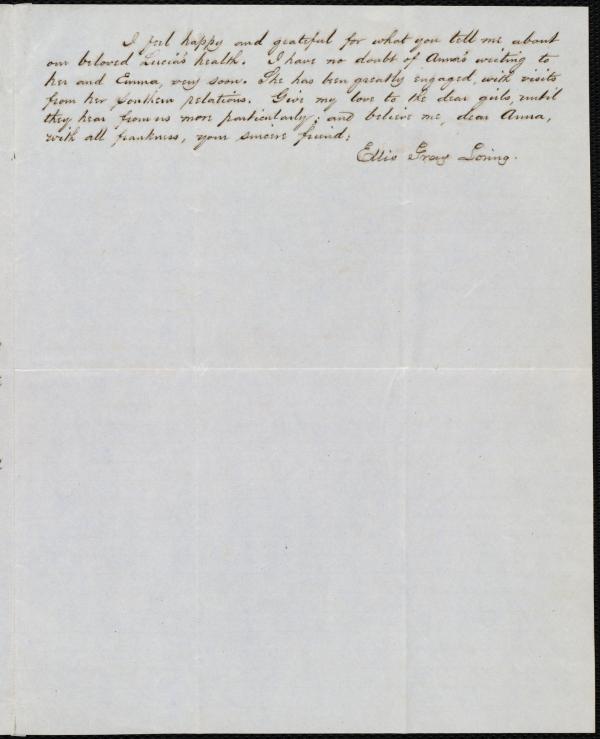 I feel happy and grateful for what you tell me about
our beloved Lucia's health. I have no doubt of Anna's writing to
her and Emma, very soon. She has been greatly engaged, with visits
from her Southern relations. Give my love to the dear girls, until
they hear from us more particularly; and believe me, dear Anna,
with all frankness, your sincere friend;
Ellis Gray Loring.